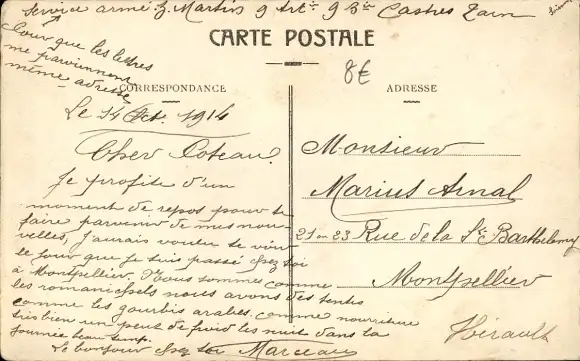 Service armé. Martin 9 Art.ie 9 Bie Castres Tarn
Pour que les lettres
me parviennent
même adresse
CARTE POSTALE
8€
CORRESPONDANCE
ADRESSE
Le 14 Oct. 1914
Cher Coteau.
Je profite d'un
moment de repos pour te
faire parvenir de mes nou-
velles, j'aurais voulu te voir
le jour que je suis passé chez toi
à Montpellier. Nous sommes comme
les romanichels nous avons des tentes
comme les gourbis arabes. comme nourriture
très bien un peut de froid les nuit dans la
journée beau temp.
Le bonjour chez toi Marceau
Monsieur
Marius Arnal
21 ou 23 Rue de la St Barthelemy
Montpellier
Hérault